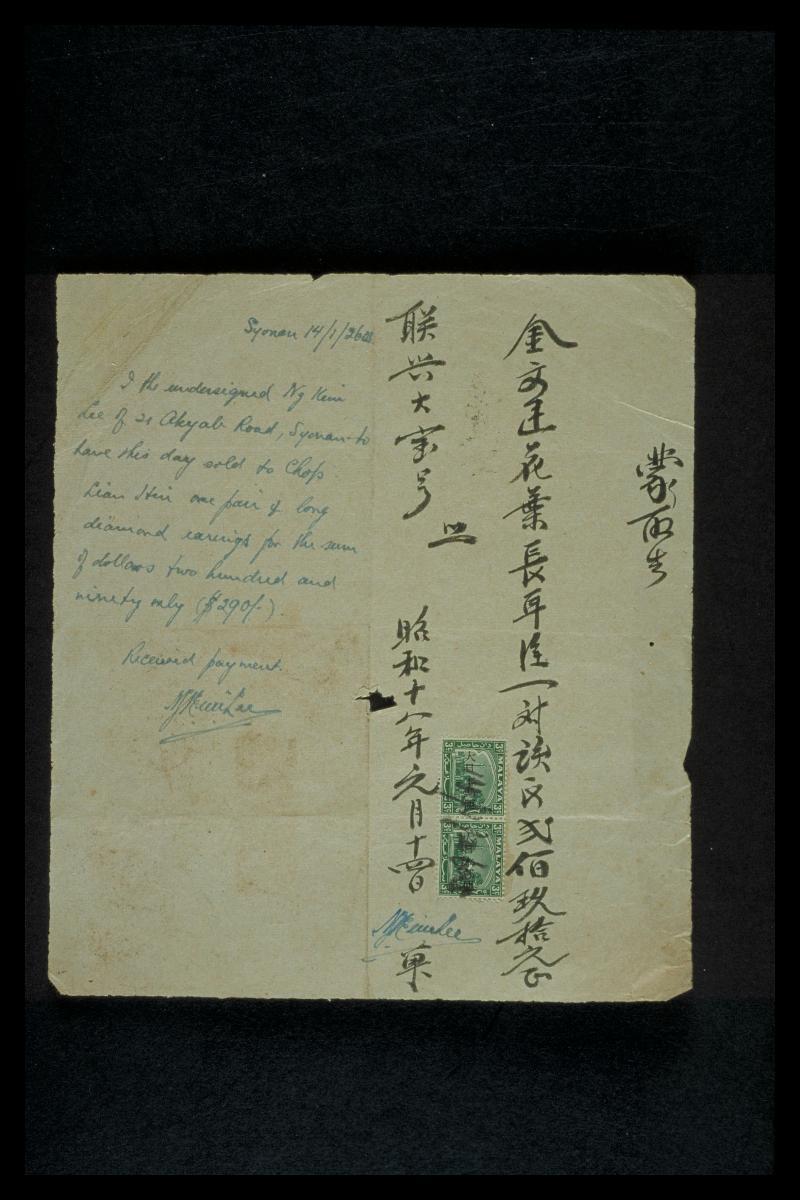 Syonan 14/1/2603
I the undersigned Ng Kim
Lee of 21 Akyab Road, Syonan-to
have this day sold to Chop
Lian Hin one pair of long
diamond earings for the sum
of dollars two hundred and
ninety only ($290/-).
Received payment.
Ng Kim Lee
蒙取去
金文 花葉長耳 一対該 弍佰玖拾元正
联兴大宝号 照
昭和十八年元月十四日
Ng Kim Lee
單
MALAYA
3c
MALAYA
3c